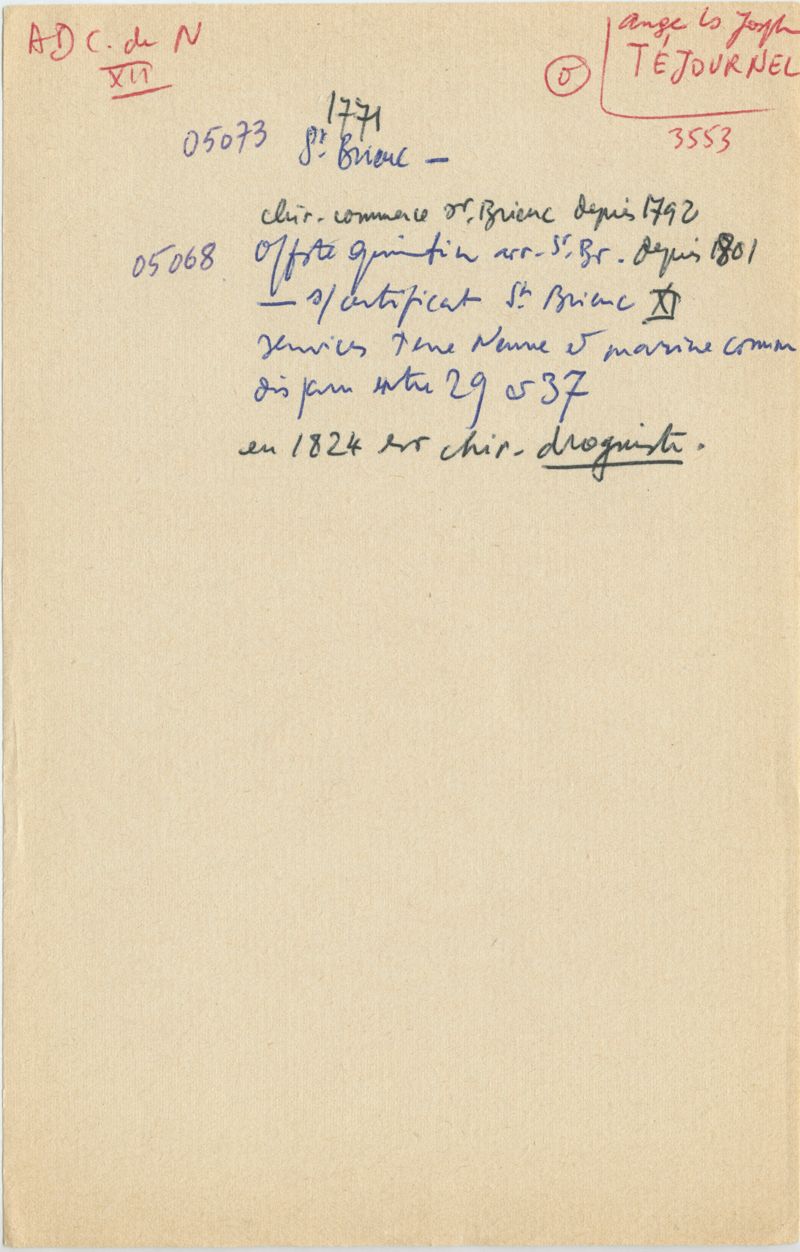 ADC. du N
XII
ange Ls Joseph
TÉJOURNEL
0
3553
1771
05073 St. Brieuc —
chir. commerce St. Brieuc depuis 1792
05068 Offste quintin arr. St. Br. depuis 1801
— s/certificat St Brieuc XI
services Terre Neuve et marine comm
disparu entre 29 et 37
en 1824 est chir. droguiste.